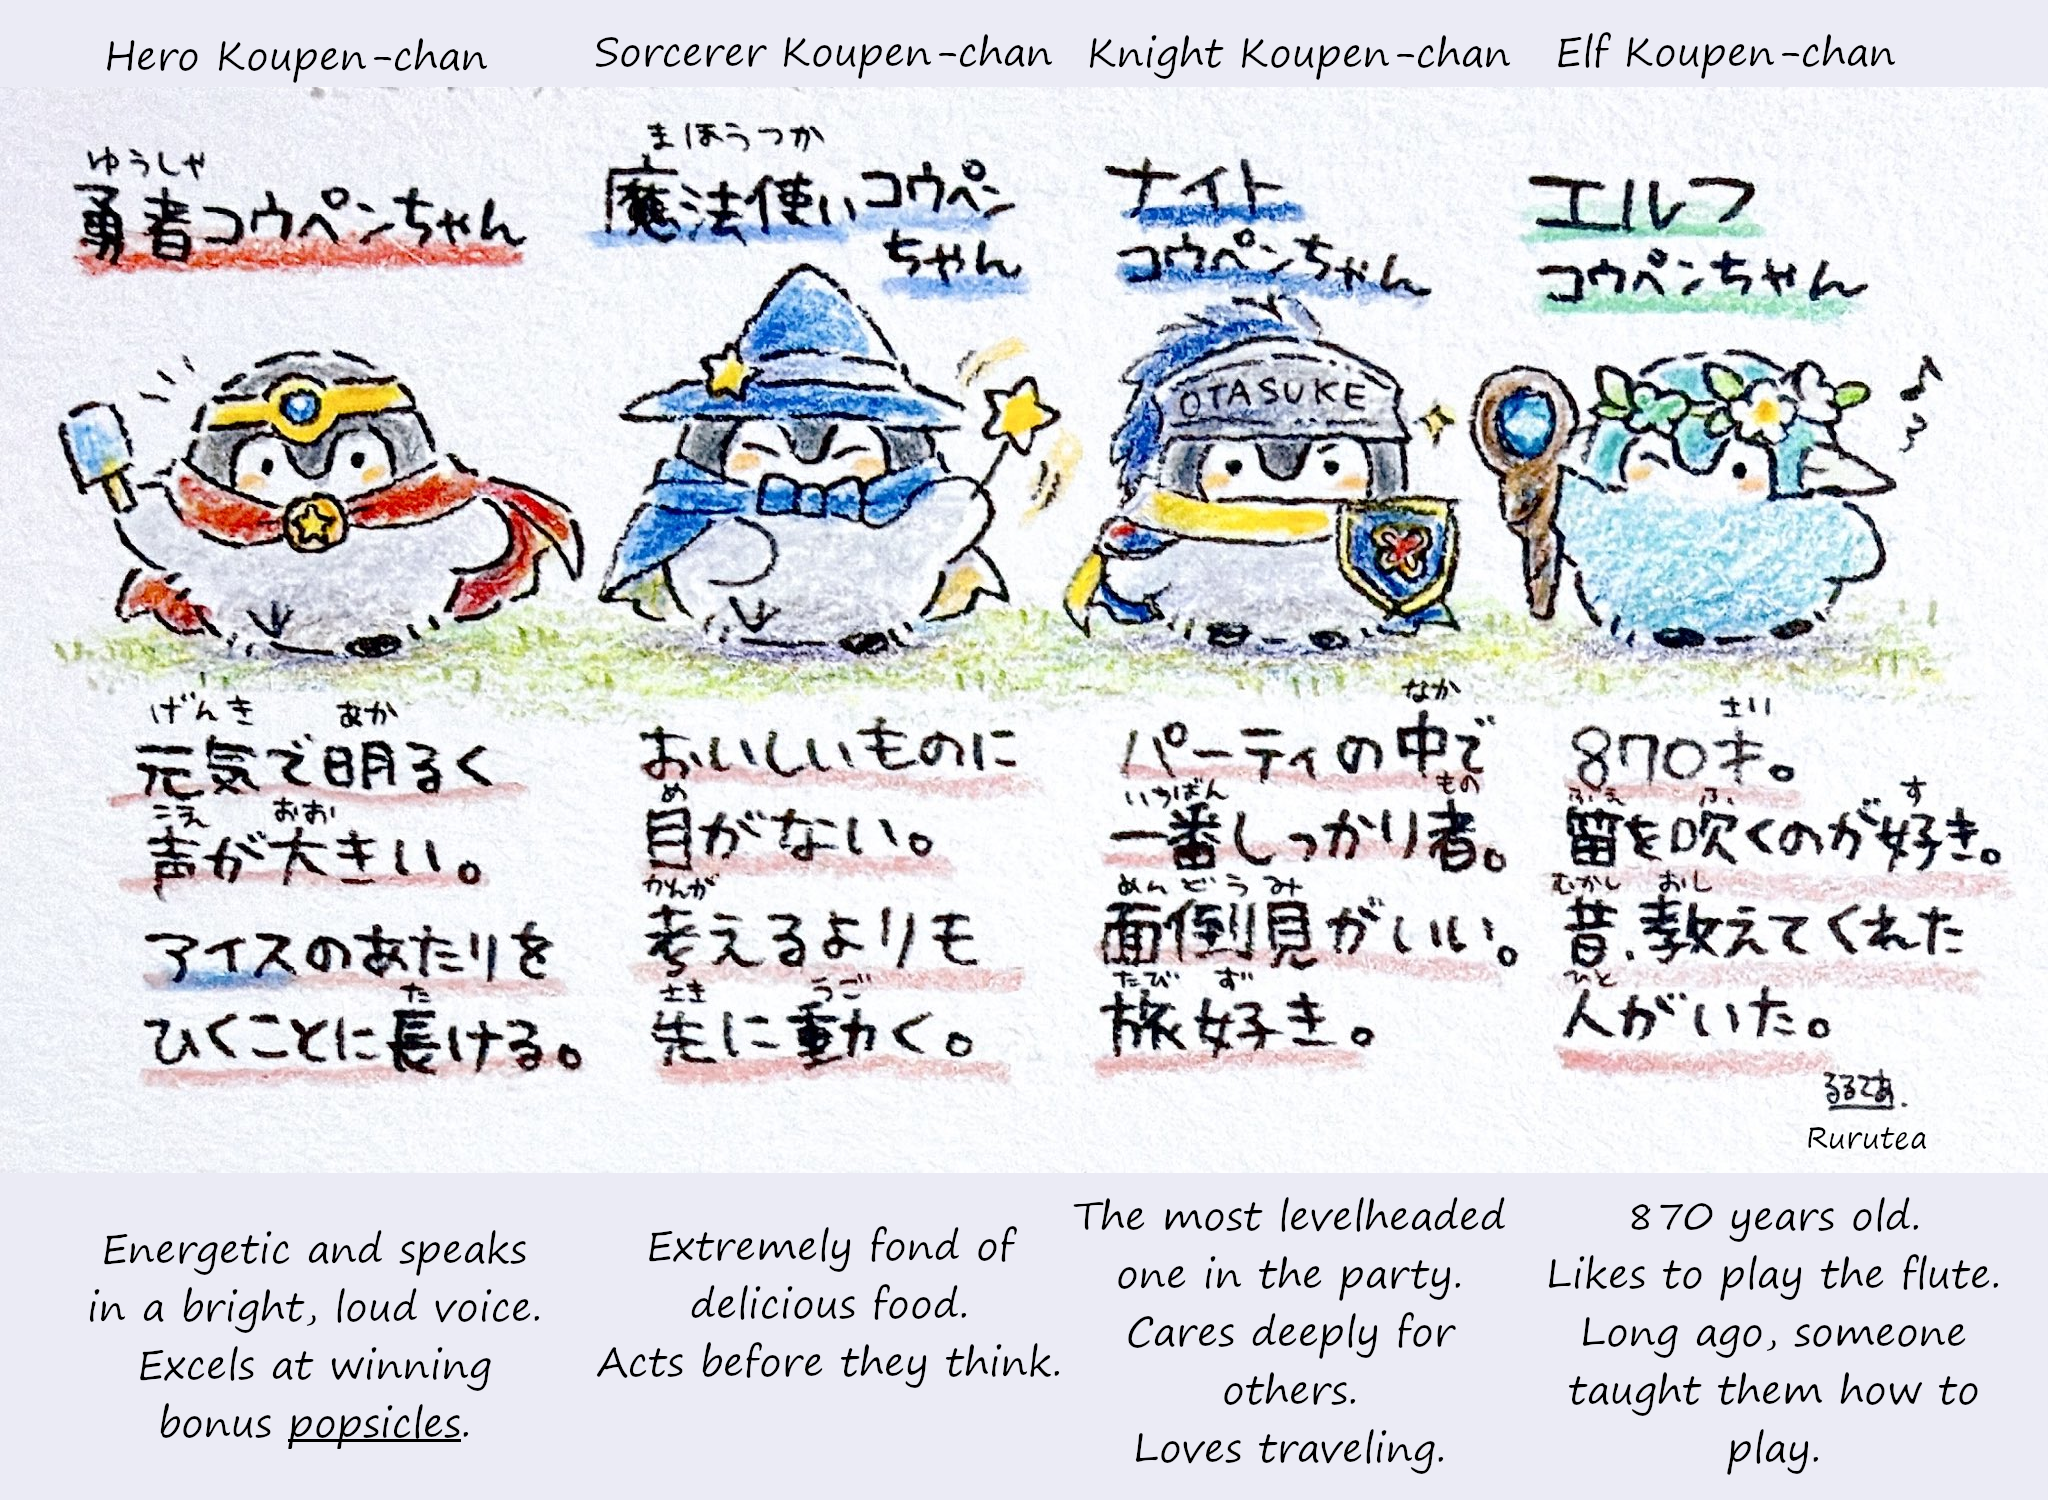 Hero Koupen-chan
Sorcerer Koupen-chan
Knight Koupen-chan
Elf Koupen-chan
ゆうしゃ
勇者コウペンちゃん
まほうつか
魔法使いコウペン
ちゃん
ナイト
コウペンちゃん
エルフ
コウペンちゃん
OTASUKE
げんき あか
元気で明るく
こえ おお
声が大きい。
アイスのあたりを
た
ひくことに長ける。
おいしいものに
め
目がない。
かんが
考えるよりも
さき うご
先に動く。
なか
パーティの中で
いちばん もの
一番しっかり者。
めんどうみ
面倒見がいい。
たび ず
旅好き。
さい
870才。
ふえ ふ す
笛を吹くのが好き。
むかし おし
昔、教えてくれた
ひと
人がいた。
るるてあ.
Rurutea
Energetic and speaks
in a bright, loud voice.
Excels at winning
bonus popsicles.
Extremely fond of
delicious food.
Acts before they think.
The most levelheaded
one in the party.
Cares deeply for
others.
Loves traveling.
870 years old.
Likes to play the flute.
Long ago, someone
taught them how to
play.